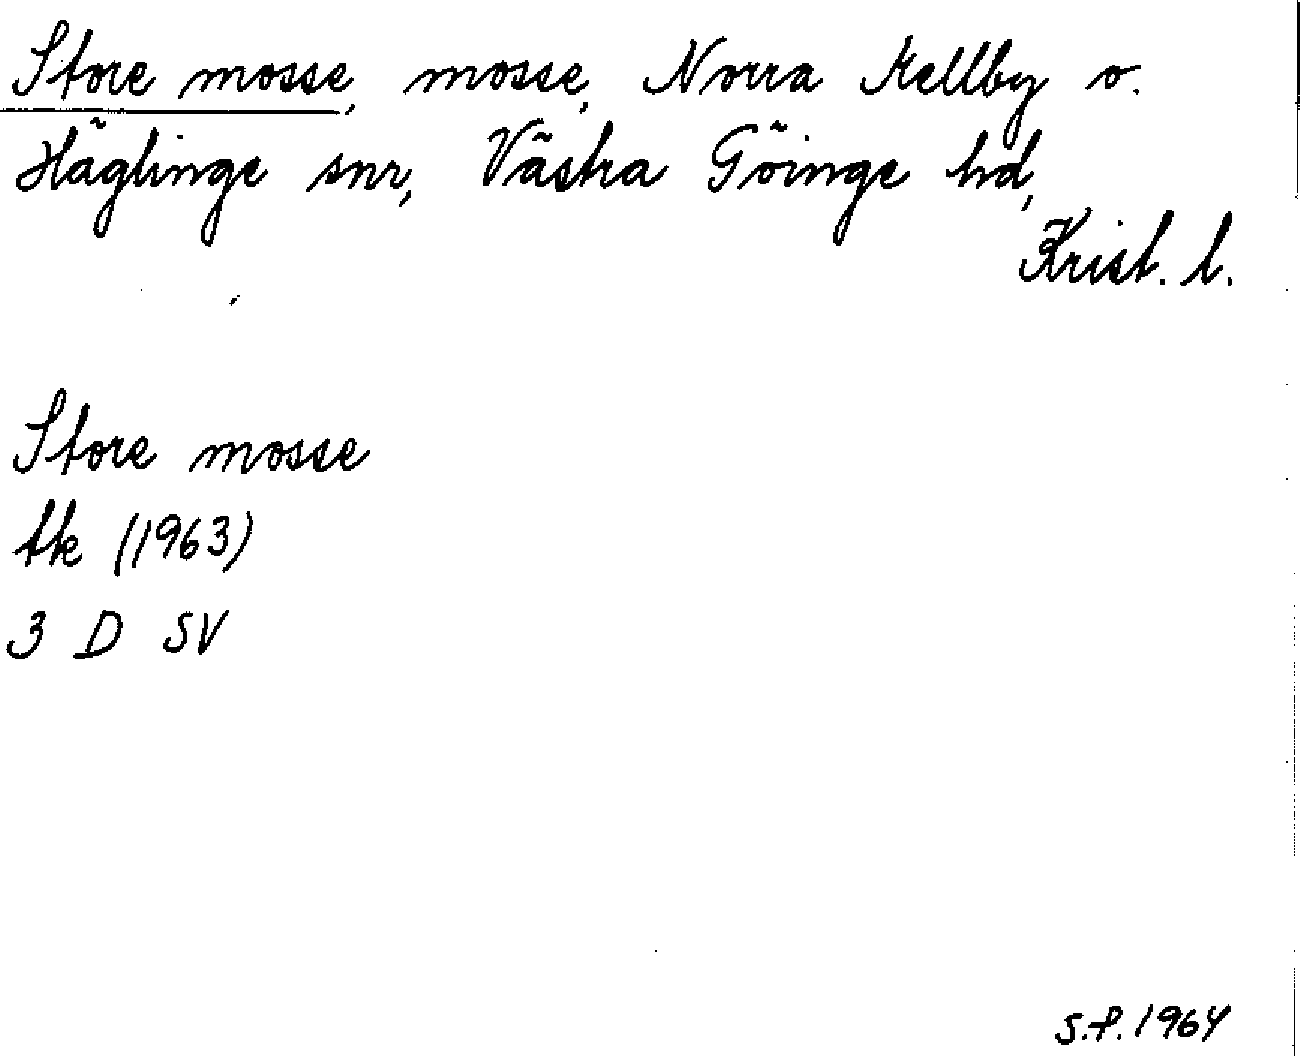 Store mosse, mosse, Norra Mellby o.
Häglinge snr, Västra Göinge hd,
Krist. l.
Store mosse
tk (1963)
3 D SV
S.P. 1964